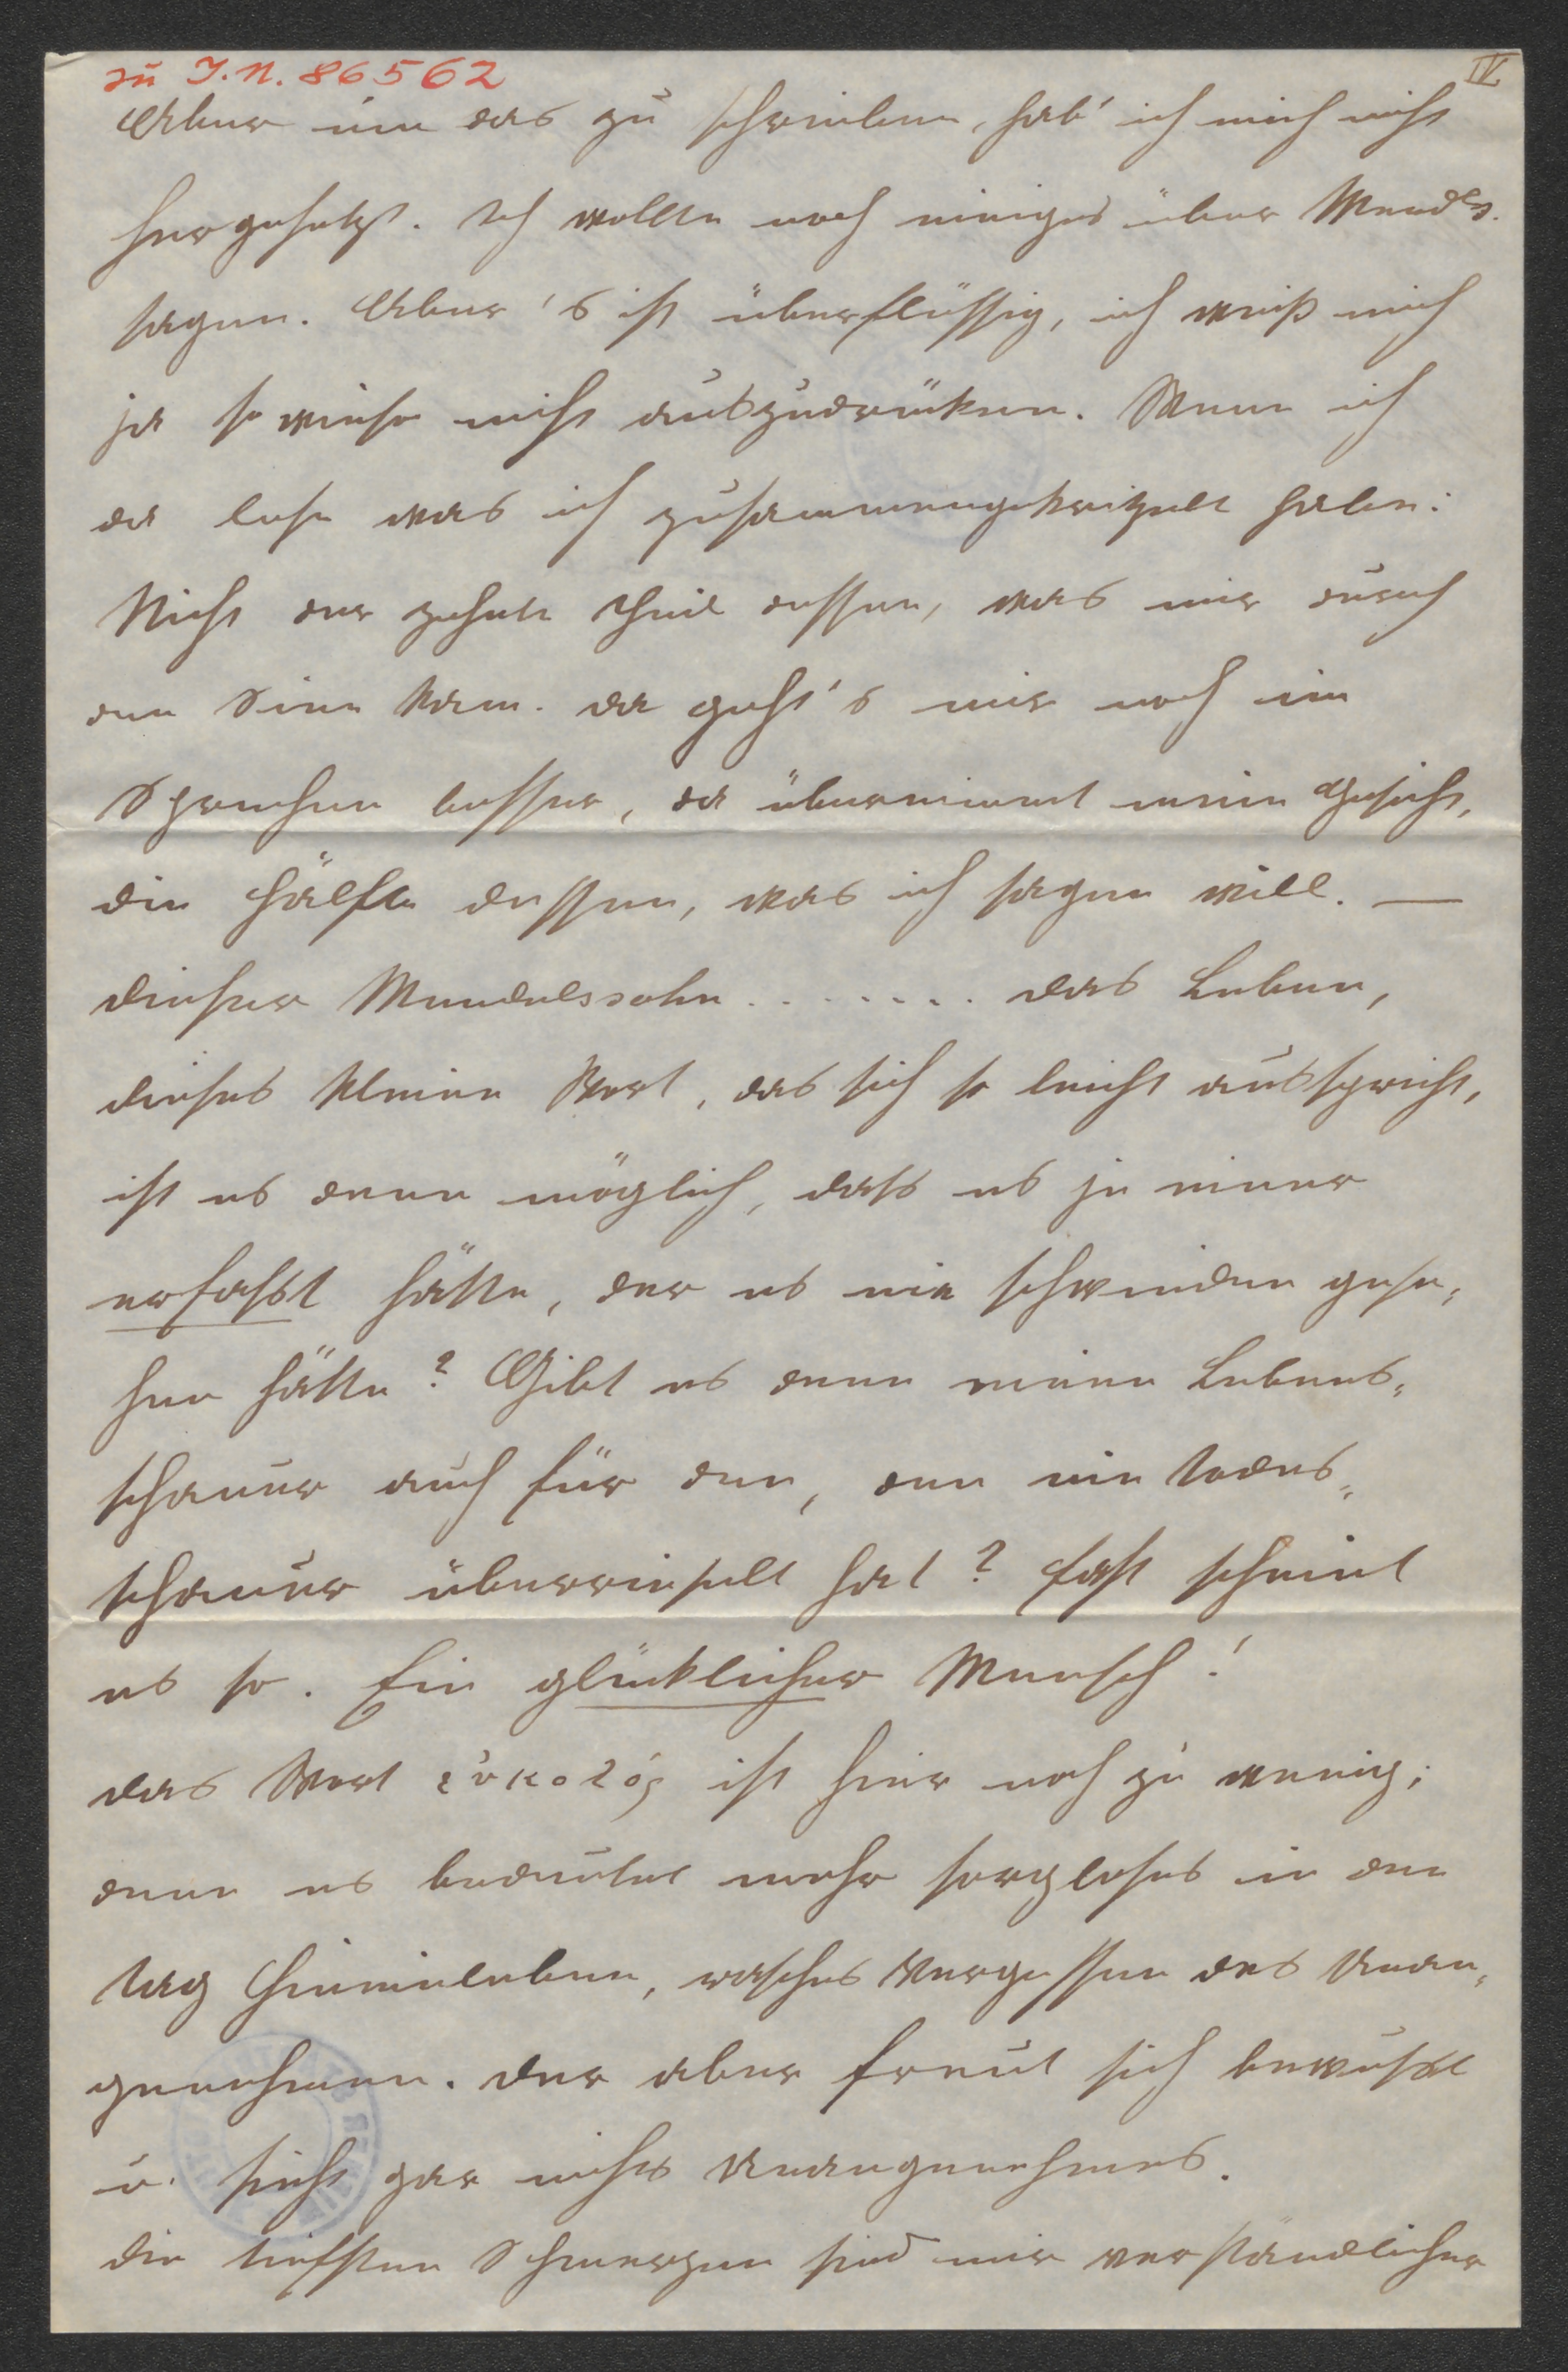 zu I.N. 86562
IV.
Aber um das zu schreiben, hab' ich mich nicht
hergesetzt. Ich wollte noch einiges über Mendls.
sagen. Aber 's ist überflüssig, ich weiß mich
ja so wieso nicht auszudrücken. Wenn ich
da lese was ich zusammengekritzelt habe:
Nicht der zehnte Theil dessen, was mir durch
den Sinn kam. Da geht's mir noch im
Sprechen besser, da übernimmt mein Gesicht,
die Hälfte dessen, was ich sagen will. —
Dieser Mendelssohn ........ Das Leben,
dieses kleine Wort, das sich so leicht ausspricht,
ist es denn möglich, dass es je einer
erfasst hätte, der es nie schwinden gese-
hen hätte? Gibt es denn einen Lebens-
schauer auch für den, den nie Todes-
schauer überrieselt hat? Fast scheint
es so. Ein glücklicher Mensch!
Das Wort εὐκολός ist hier noch zu wenig;
denn es bedeutet mehr sorgloses in den
Tag Hineinleben, rasches Vergessen des Unan-
genehmen. Der aber freut sich bewusst
u. sieht gar nichts Unangenehmes.
Die tiefsten Schmerzen sind mir verständlicher